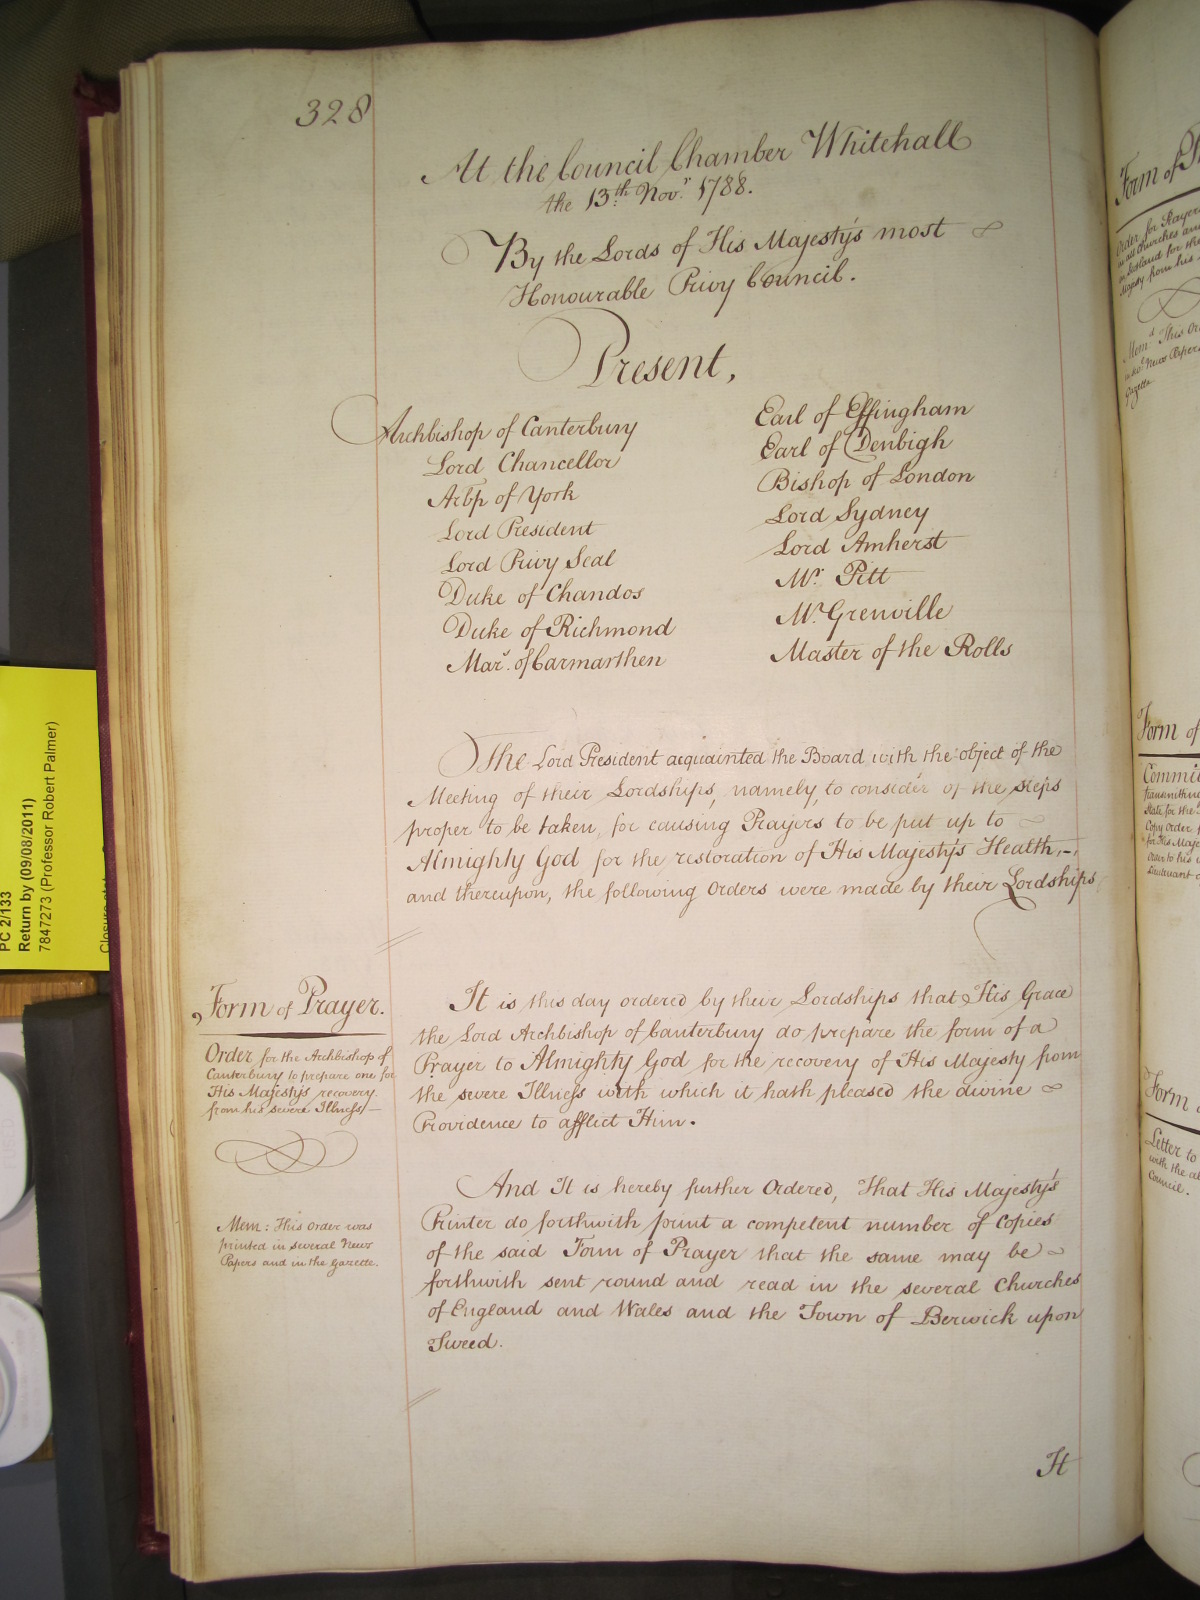 328
At the Council Chamber Whitehall
the 13th Novr 1788.
By the Lords of His Majesty's most
Honourable Privy Council.
Present,
Archbishop of Canterbury
Lord Chancellor
Arbp of York
Lord President
Lord Privy Seal
Duke of Chandos
Duke of Richmond
Marq. of Carmarthen
Earl of Effingham
Earl of Denbigh
Bishop of London
Lord Sydney
Lord Amherst
Mr. Pitt
Mr. Grenville
Master of the Rolls
The Lord President acquainted the Board with the object of the
Meeting of their Lordships, namely, to consider of the steps
proper to be taken, for causing Prayers to be put up to
Almighty God for the restoration of His Majesty's Health,-
and thereupon, the following Orders were made by their Lordships
Form of Prayer.
Order for the Archbishop of
Canterbury to prepare one for
His Majesty's recovery
from his severe Illness/—
Mem: This Order was
printed in several News
Papers and in the Gazette.
It is this day ordered by their Lordships that His Grace
the Lord Archbishop of Canterbury do prepare the form of a
Prayer to Almighty God for the recovery of His Majesty from
the severe Illness with which it hath pleased the divine
Providence to afflict Him.
And It is hereby further Ordered, That His Majesty's
Printer do forthwith print a competent number of Copies
of the said Form of Prayer that the same may be
forthwith sent round and read in the several Churches
of England and Wales and the Town of Berwick upon
Tweed.
It
PC 2/133
Return by (09/08/2011)
7847273 (Professor Robert Palmer)
Form of
Order for Prayer
Mem
This
News Papers
Gazette
Form of
Committ
transmitting
State for the
Copy order
for His Maje
Order to his
Lieutenant
Form
Letter to
with the
Council.